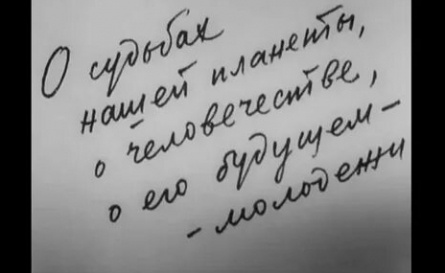 О судьбах
нашей планеты,
о человечестве,
о его будущем –
- молодежи